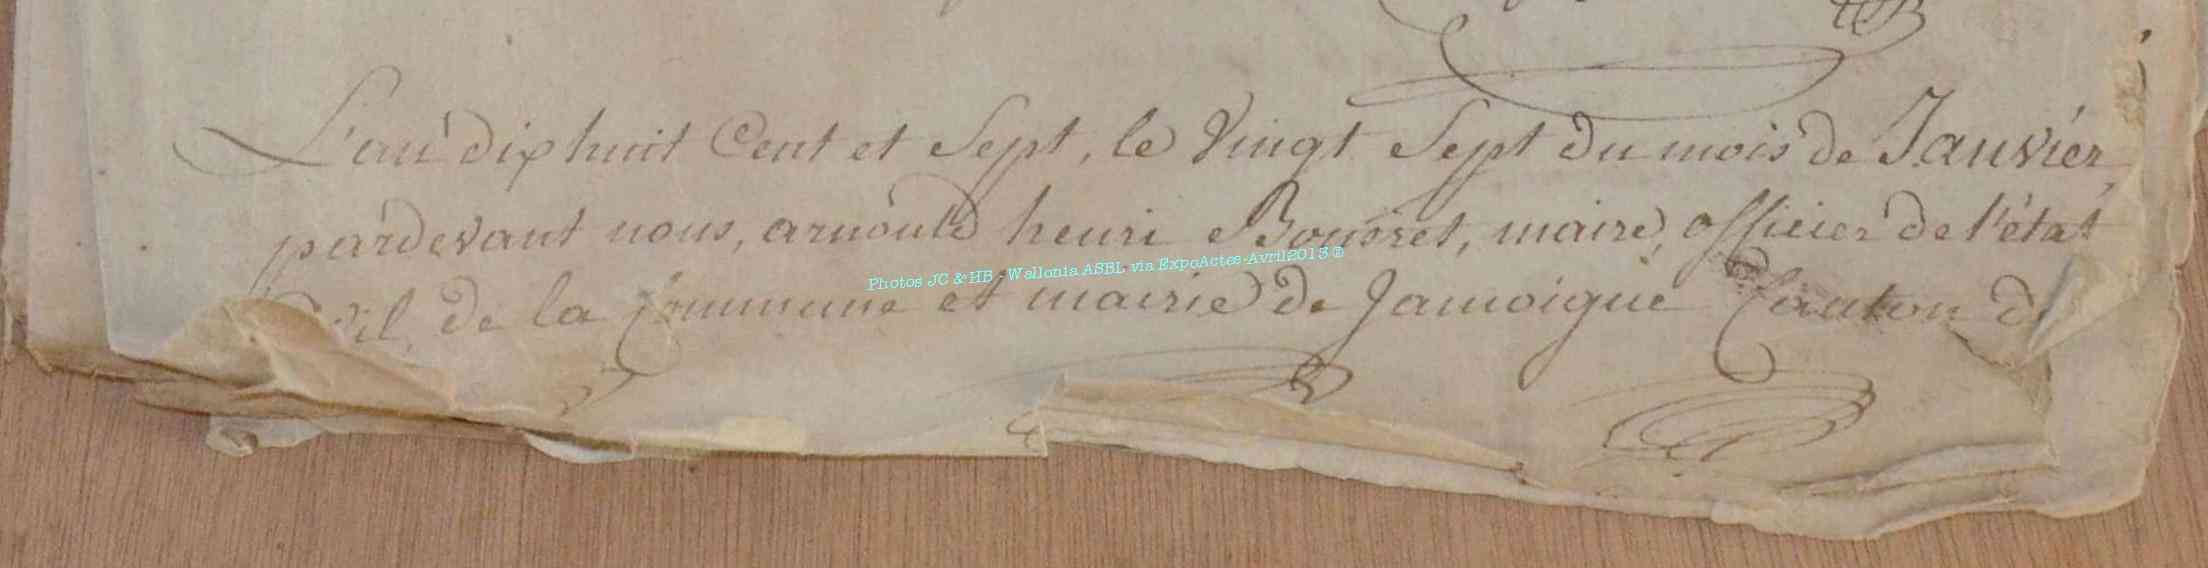 L'an dix huit Cent et Sept, le Vingt Sept du mois de Janvier,
pardevant nous, arnould henri Boneret, maire, officier de l'état
Civil, de la Commune et mairie de Jamoigne Canton d
Photos JC & HB - Wallonia ASBL via ExpoActes-Avril2013 ©